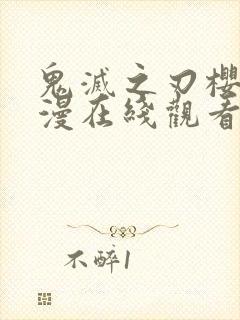 鬼滅之刃櫻
漫在綫觀看
不醉1